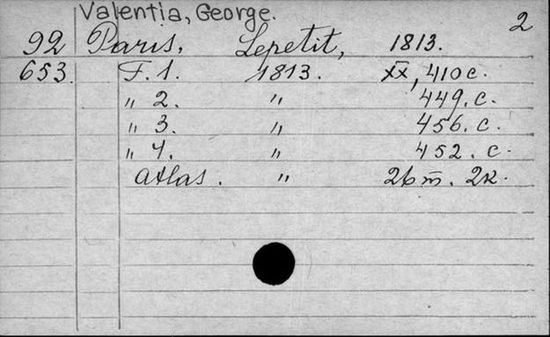 Valentia, George.
2
92 Paris, Lepetit, 1813.
653. T. 1. 1813. XX, 410 с.
" 2. " 449. с.
" 3. " 456. с.
" 4. " 452. с.
Atlas. " 26 т. 2к.